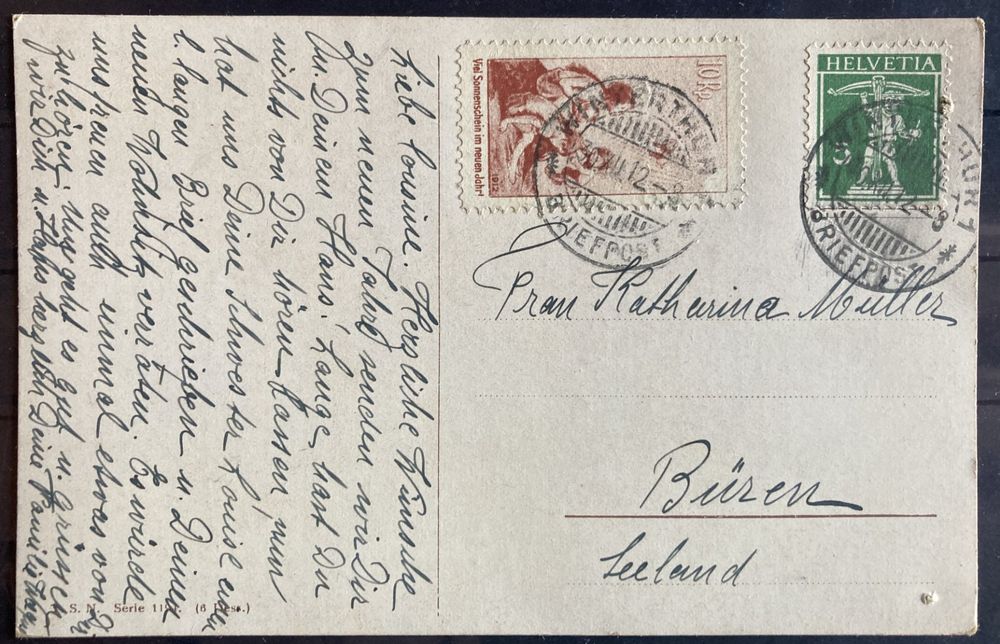 Liebe Cousine. Herzliche Wünsche
zum neuen Jahre senden wir Dir
u. Deinem Hans. Lange hast Du
nichts von Dir hören lassen, nun
hat uns Deine Schwester Louise einen
l. langen Brief geschrieben u. Deinen
neuen Wohnsitz verraten. Es würde
uns freuen auch einmal etwas von Dir
zu hören. Uns geht es gut u. grüssen
wir Dich u. Hans herzlich Deine Familie
S. N. Serie (6 Dess.)
10 Rp.
Viel Sonnenschein im neuen Jahr!
1912
WINTERTHUR
XII.12-8
BRIEFPOST
HELVETIA
5
XII.12-8
BRIEFPOST
HUR 1
Frau Katharina Müller
Büren
Seeland